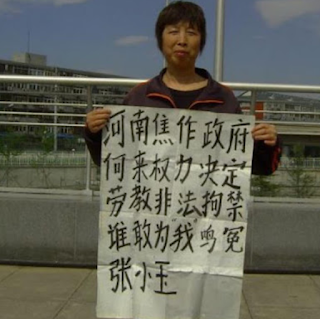 河南焦作政府
何来权力决定
劳教非法拘禁
谁敢为我鸣冤
张小玉